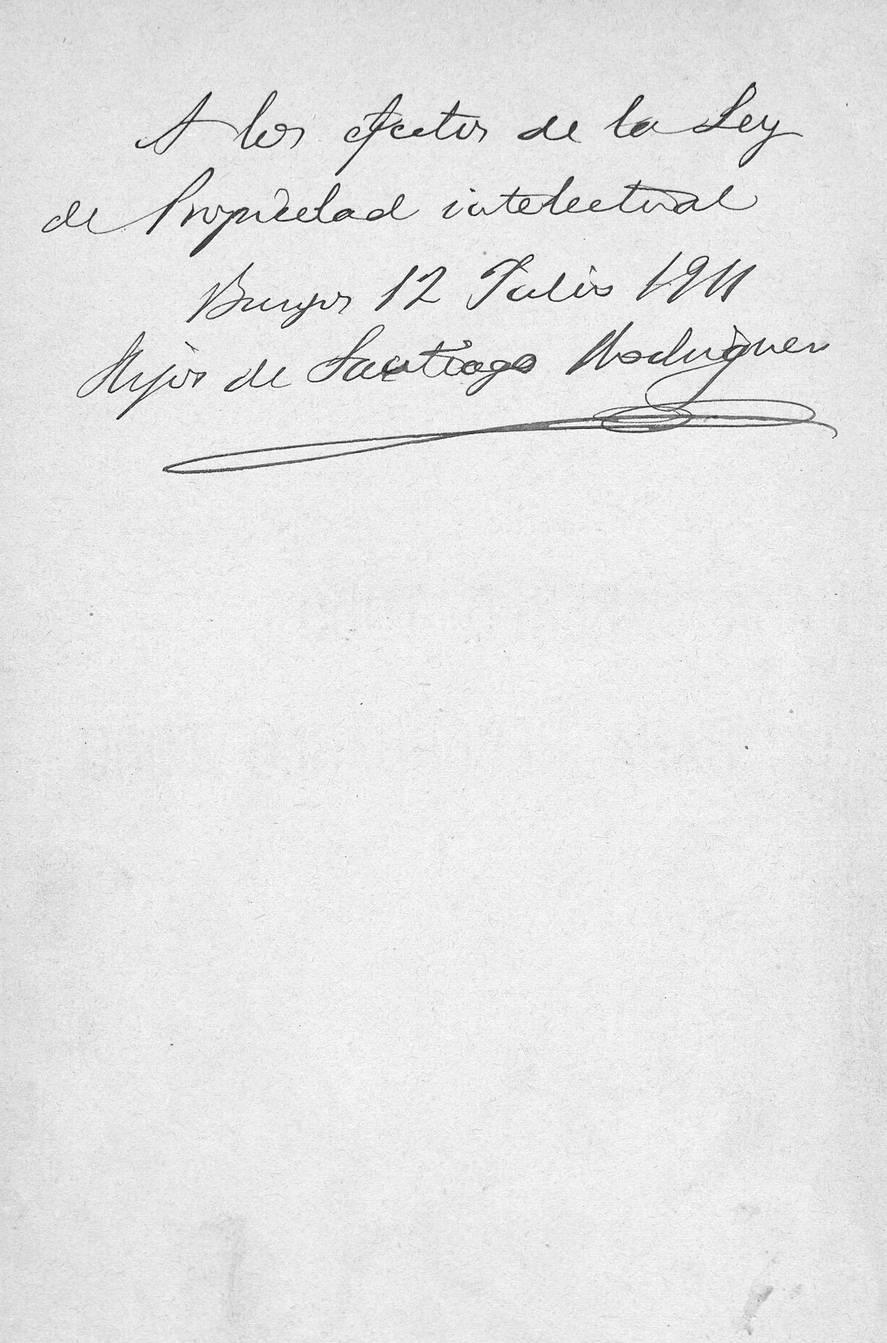 A los efectos de la Ley
de Propiedad intelectual
Burgos 12 Julio 1911
Hijos de Santiago Rodriguez